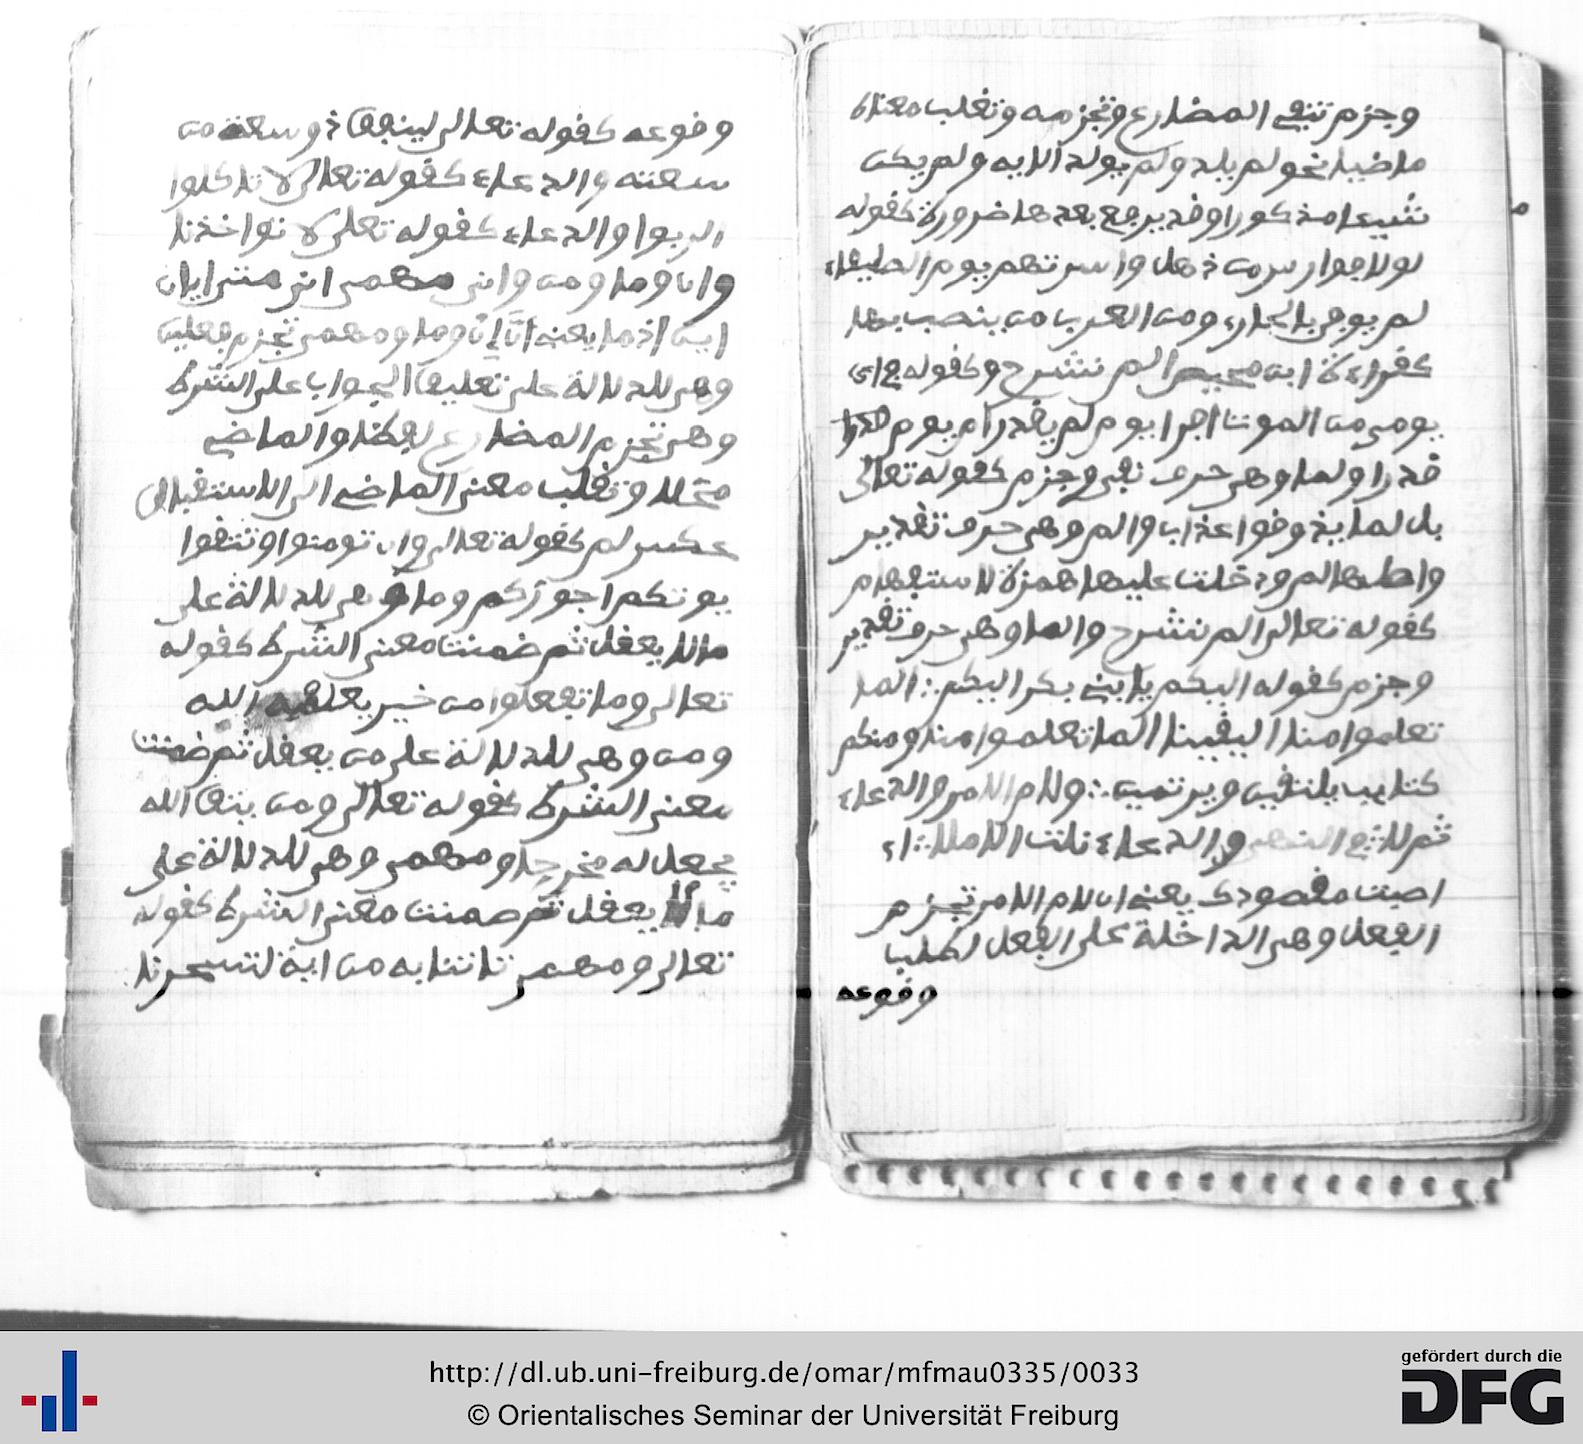 وجزم تنفي المضارع وتجزمه وتغلب معناه
ماضيا نحو لم يلد ولم يولد الايه ولم يكن
شيئا مذكورا وقد يرجع بعدها ضرورة كقوله
لولا جوار من ذهل واسرتهم يوم الصليفاء
لم يوفى بالجار، ومن العرب من ينصب بها
كقراءة ابن محيصر الم نشرح وكقوله في اى
يومى من الموت افر ايوم لم يقدر ام يوم
قدرا ولما وهى حرف نفى وجزم كقوله تعالى
بل لما يذوقوا عذاب والم وهى حرف تقدير
واصلها لم ودخلت عليها همزة الاستفهام
كقوله تعالى الم نشرح والما وهى حرف تقدير
وجزم كقوله اليكم يا بني بكر اليكم ∴ الما
تعلموا منا اليقينا الما تعلموا منا ومنكم
كتايب يلتقين ويرتمين ∴ ولام الامر والدعاء
ثم لا في النهى والدعاء نلت الاملا
اصبت مقصودك يعني ان لام الامر تجزم
الفعل وهى الداخلة على الفعل لطلب
وقوعه
وقوعه كقوله تعالى لينفق ذو سعة من
سعته والدعاء كقوله تعالى لا تاكلوا
الربوا والدعاء كقوله تعلى لا تواخذنا
وان وما ومن وانى مهمى اى متى ايان
اين اذما يعني ان ان وما ومهمى تجزم فعلين
وهى للدلالة على تعليق الجواب على الشرط
وهى تجزم المضارع لفظا والماضي
محلا وتغلب معنى الماضي الى الاستقبال
عكس لم كقوله تعالى وان تومنوا وتتقوا
يوتكم اجوركم وما وهى للدلالة على
ما لا يعقل ثم ضمنت معنى الشرط كقوله
تعالى وما تفعلوا من خير يعلمه الله
ومن وهى للدلالة على من يعقل ثم ضمنت
معنى الشرط كقوله تعالى ومن يتق الله
يجعل له مخرجا ومهمى وهى للدلالة على
ما لا يعقل ثم ضمنت معنى الشرط كقوله
تعالى ومهمى تاتنا به من اية لتسحرنا
http://dl.ub.uni-freiburg.de/omar/mfmau0335/0033
© Orientalisches Seminar der Universität Freiburg
gefördert durch die
DFG